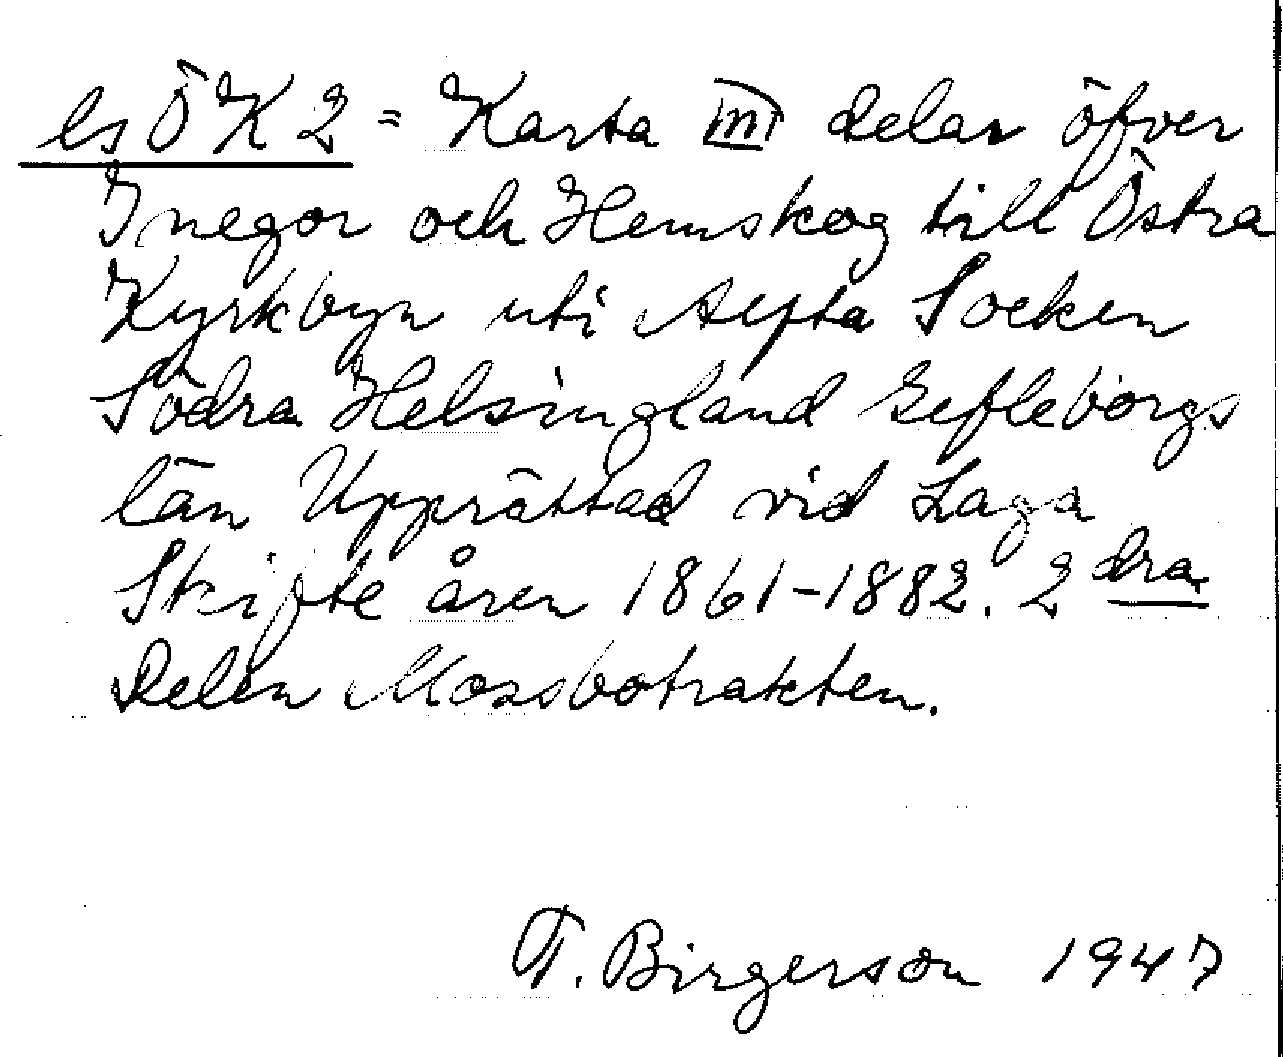 ls ÖK 2 = Karta III delar öfver
Inegor och Hemskog till Östra
Kyrkbyn uti Alfta Socken
Södra Helsingland Gefleborgs
län Upprättad vid Laga
Skifte åren 1861-1882. 2 dra
Delen Mossbotrakten.
T. Birgerson 1947